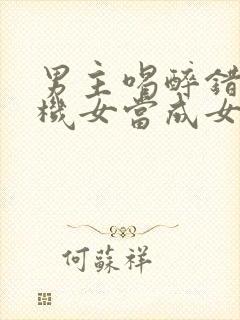 男主喝醉錯
機女當成女
何蘇祥